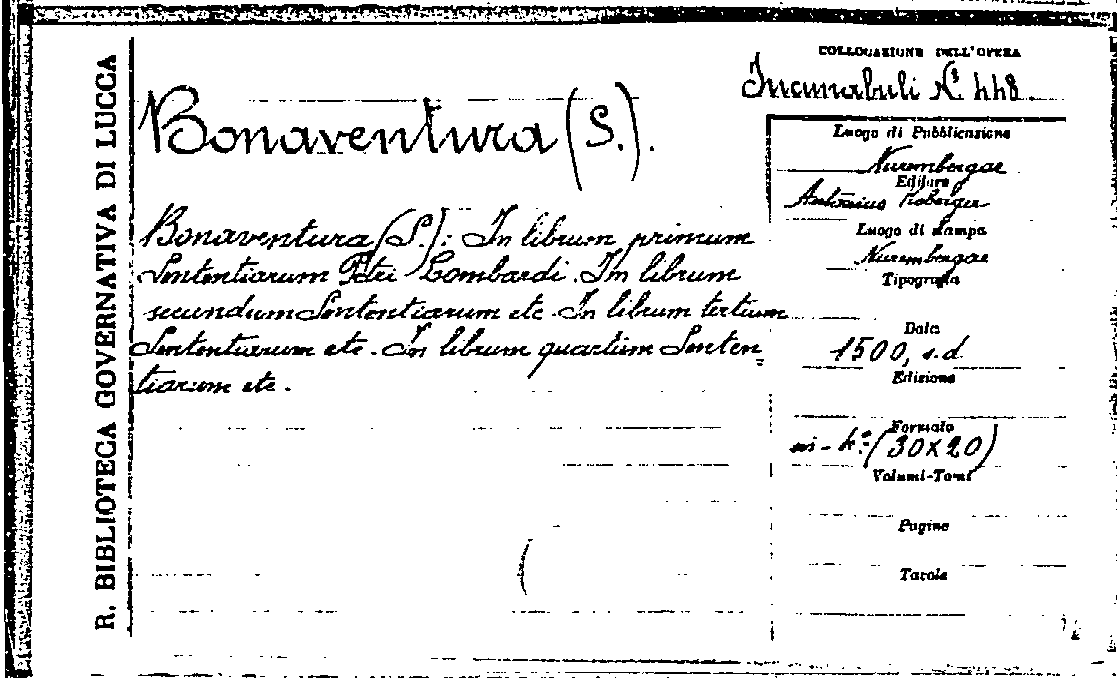 R. BIBLIOTECA GOVERNATIVA DI LUCCA
COLLOCAZIONE DELL'OPERA
Incunabuli N. 448.
Bonaventura (S.).
Bonaventura (S.): In librum primum
Sententiarum Petri Lombardi. In librum
secundum Sententiarum etc. In librum tertium
Sententiarum etc. In librum quartum Senten
tiarum etc.
Luogo di Pubblicazione
Nurembergae
Editore
Antonius Koberger
Luogo di stampa
Nurembergae
Tipografia
Data
1500, s.d.
Edizione
Formato
in-4.° (30x20)
Volumi-Tomi
Pagine
Tavole